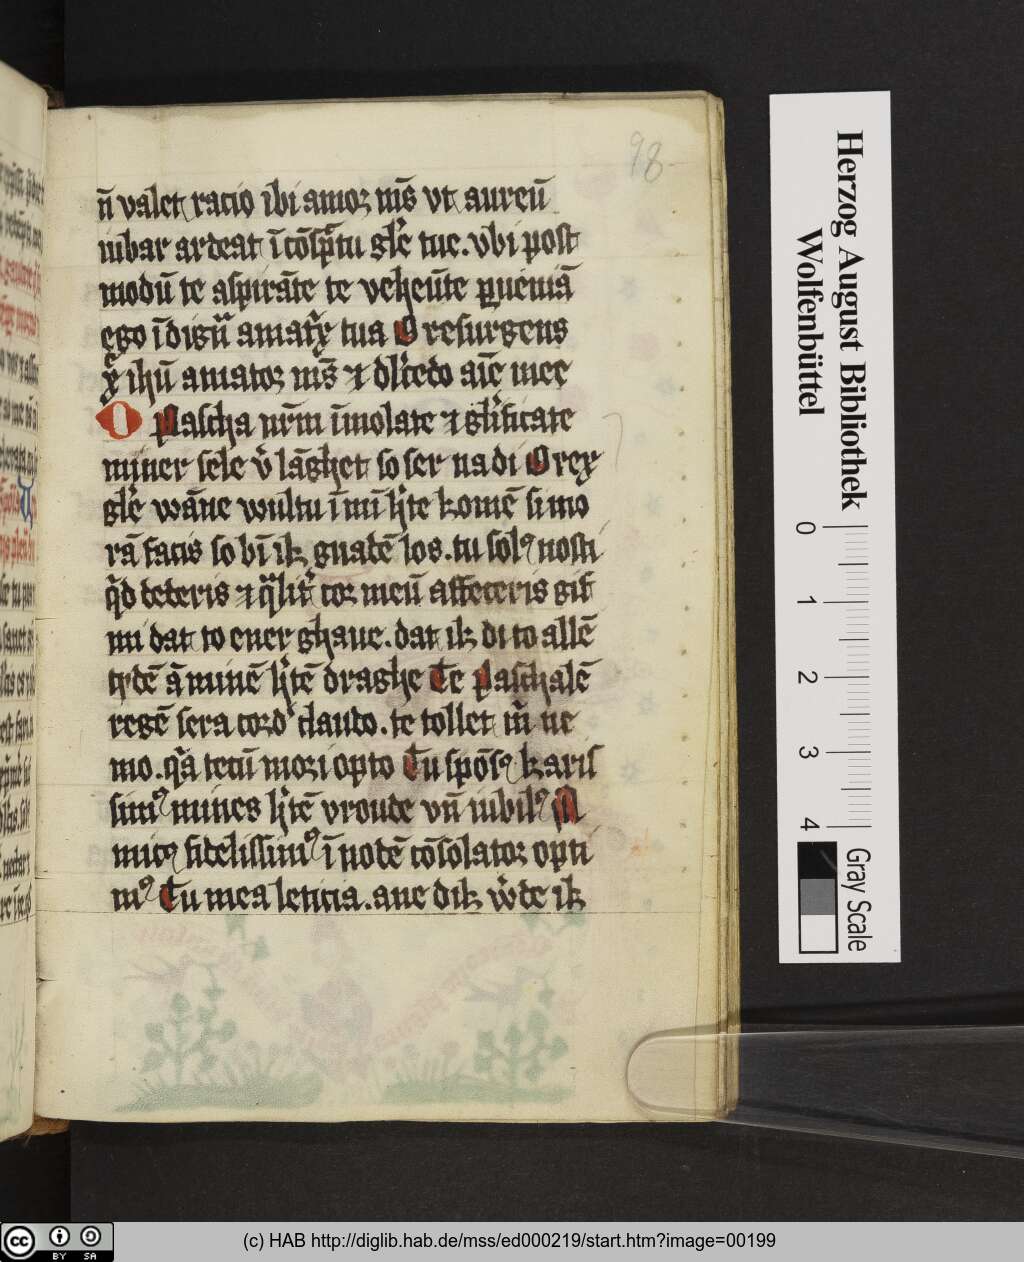 98
n̄ valet racio ibi amor m̄s vt aureū
iubar ardeat ī cōsp̄tu gl̄e tue. vbi post
modū te aspirāte te veheūte ꝑueniā
ego īdigͣ amatͥx tua O resurgens
xp̄ ihū amator m̄s ⁊ dl̄cedo aīe mee
O Pascha nr̄m īmolate ⁊ gl̄ificate
miner sele v̄ lāghet so ser na di O rex
gl̄e wāne wultu ī mī h̄te komē si mo
rā facis so bī ik gnadē los. tu solꝰ nosti
qͥd deteris ⁊ qͣlit̄ cor meū affeceris gif
mi dat to ener ghaue. dat ik di to allē
tydē ā minē h̄tē draghe Te Paschalē
regē sera cordꝰ claudo. te tollet m̄ ne
mo. qͣ tecū mori opto Tu spōsꝰ karis
simꝰ mines h̄tē vroude vn̄ iubilꝰ A
micꝰ fidelissimꝰ ī nodē cōsolator opti
mꝰ Tu mea leticia. ane dik w̄de ik
Herzog August Bibliothek
Wolfenbüttel
0 1 2 3 4
Gray Scale
cc BY SA
(c) HAB http://diglib.hab.de/mss/ed000219/start.htm?image=00199